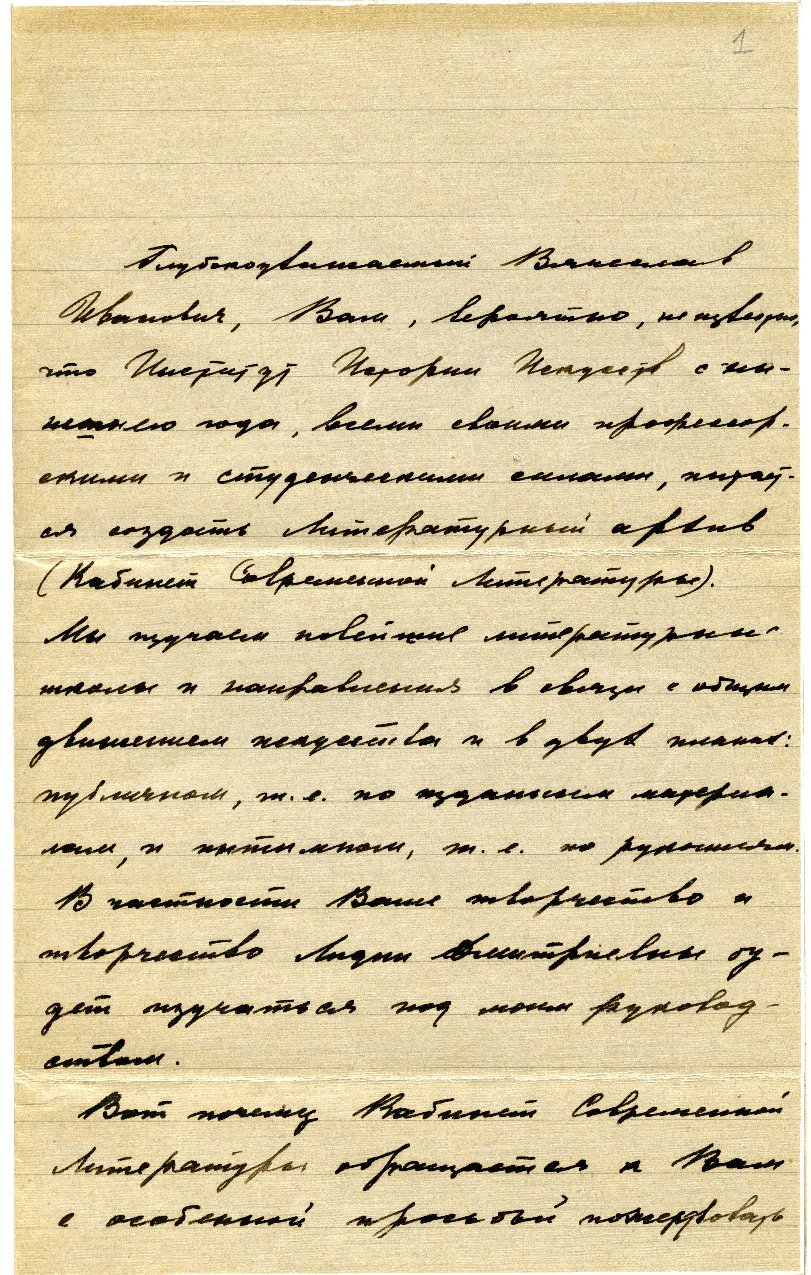 1
Глубокоуважаемый Вячеслав
Иванович, Вам, вероятно, неизвестно,
что Институт Истории Искусств с ны-
нешнего года, всеми своими профессор-
скими и студенческими силами, пытает-
ся создать Литературный архив
(Кабинет Современной Литературы).
Мы изучаем новейшие литературные
школы и направления в связи с общим
движением искусства и в двух планах:
публичном, т.е. по изданным материа-
лам, и интимном, т.е. по рукописям.
В частности Ваше творчество и
творчество Лидии Дмитриевны бу-
дет изучаться под моим руковод-
ством.
Вот почему Кабинет Современной
Литературы обращается к Вам
с особенной просьбой пожертвовать